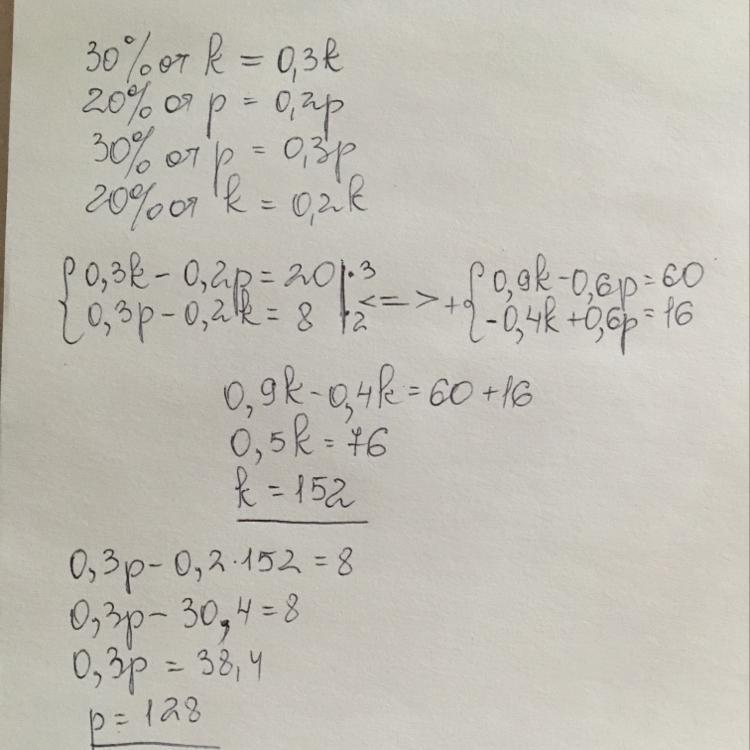 30% от k = 0,3k
20% от p = 0,2p
30% от p = 0,3p
20% от k = 0,2k
{0,3k - 0,2p = 20 |·3 <=> +{0,9k - 0,6p = 60
{0,3p - 0,2k = 8 |·2 {-0,4k + 0,6p = 16
0,9k - 0,4k = 60 + 16
0,5k = 76
k = 152
0,3p - 0,2·152 = 8
0,3p - 30,4 = 8
0,3p = 38,4
p = 128